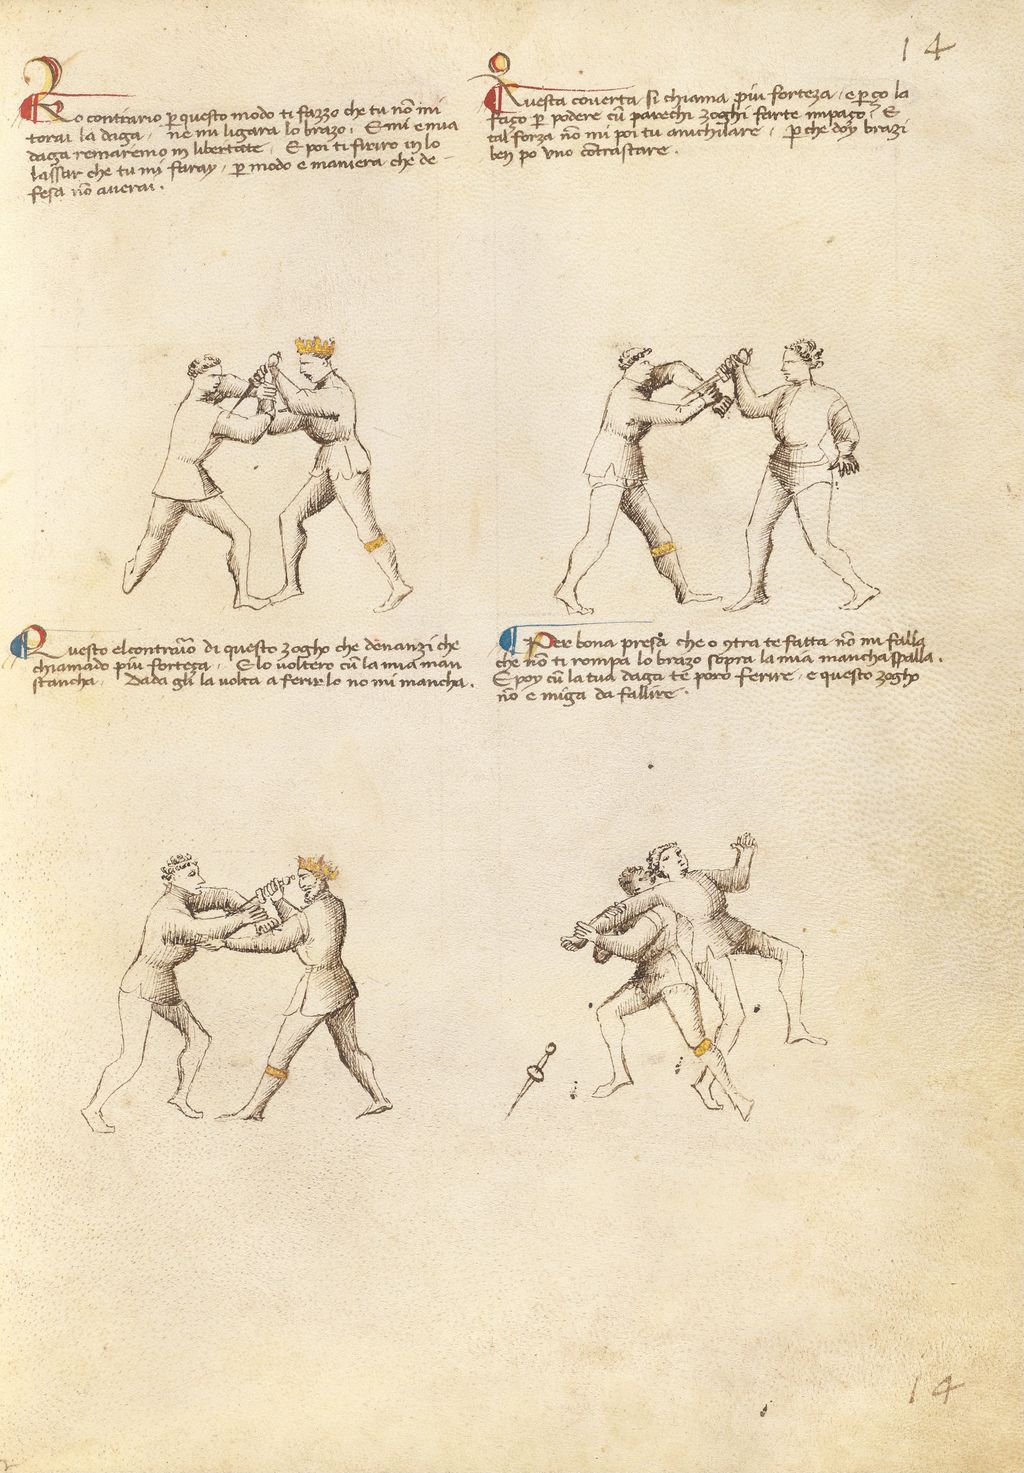 14
Lo contrario p questo modo ti fazzo che tu nō mi
torai la daga, ne mi ligara lo brazo. E mi e mia
daga remaremo in libertate. E poi ti feriro in lo
lassar che tu mi faray, p modo e maniera che de-
fesa nō averai.
Questa coverta si chiama piu forteza, e p ço la
faço p podere cū parechi zoghi farte impaço. E
tal forza nō mi poi tu anichilare, p che doy brazi
ben po uno cōtrastare.
Questo el contrario di questo zogho che denanzi che
chiamado piu forteza. E lo voltero cū la mia man
stancha. Dada gli la volta a ferirlo no mi mancha.
Per bona presa che o 9tra te fatta nō mi falla
che nō ti rompa lo brazo sopra la mia mancha spalla.
E poy cū la tua daga te poro ferire, e questo zogho
nō e miga da fallire.
14